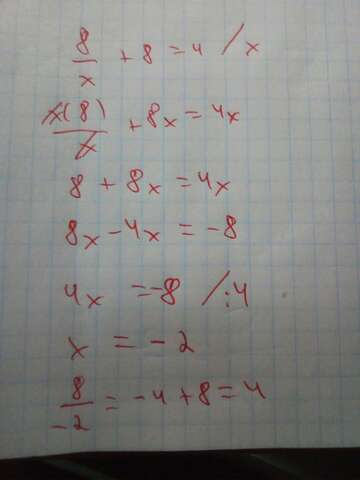 8/x + 8 = 4 / x
x(8)/x + 8x = 4x
8 + 8x = 4x
8x - 4x = -8
4x = -8 / :4
x = -2
8/-2 = -4 + 8 = 4